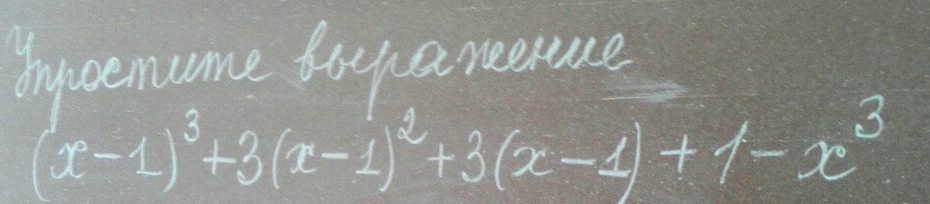 Упростите выражение
(x-1)³+3(x-1)²+3(x-1)+1-x³